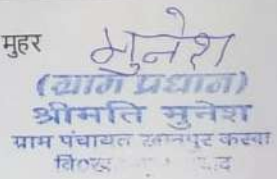 मुहर मुनेश
(ग्राम प्रधान)
श्रीमति मुनेश
ग्राम पंचायत खानपुर करवा
वि०ख०